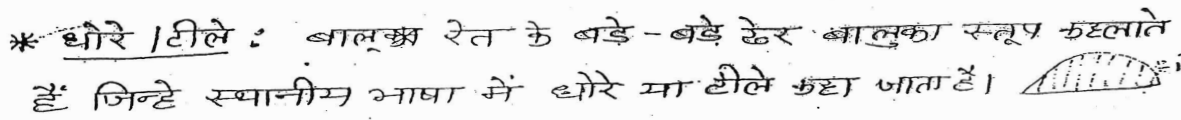 * धोरे / टीले : बालूका रेत के बडे - बडे़ ढेर बालुका स्तूप कहलाते
हैं जिन्हे स्थानीय भाषा में धोरे या टीले कहा जाता है।